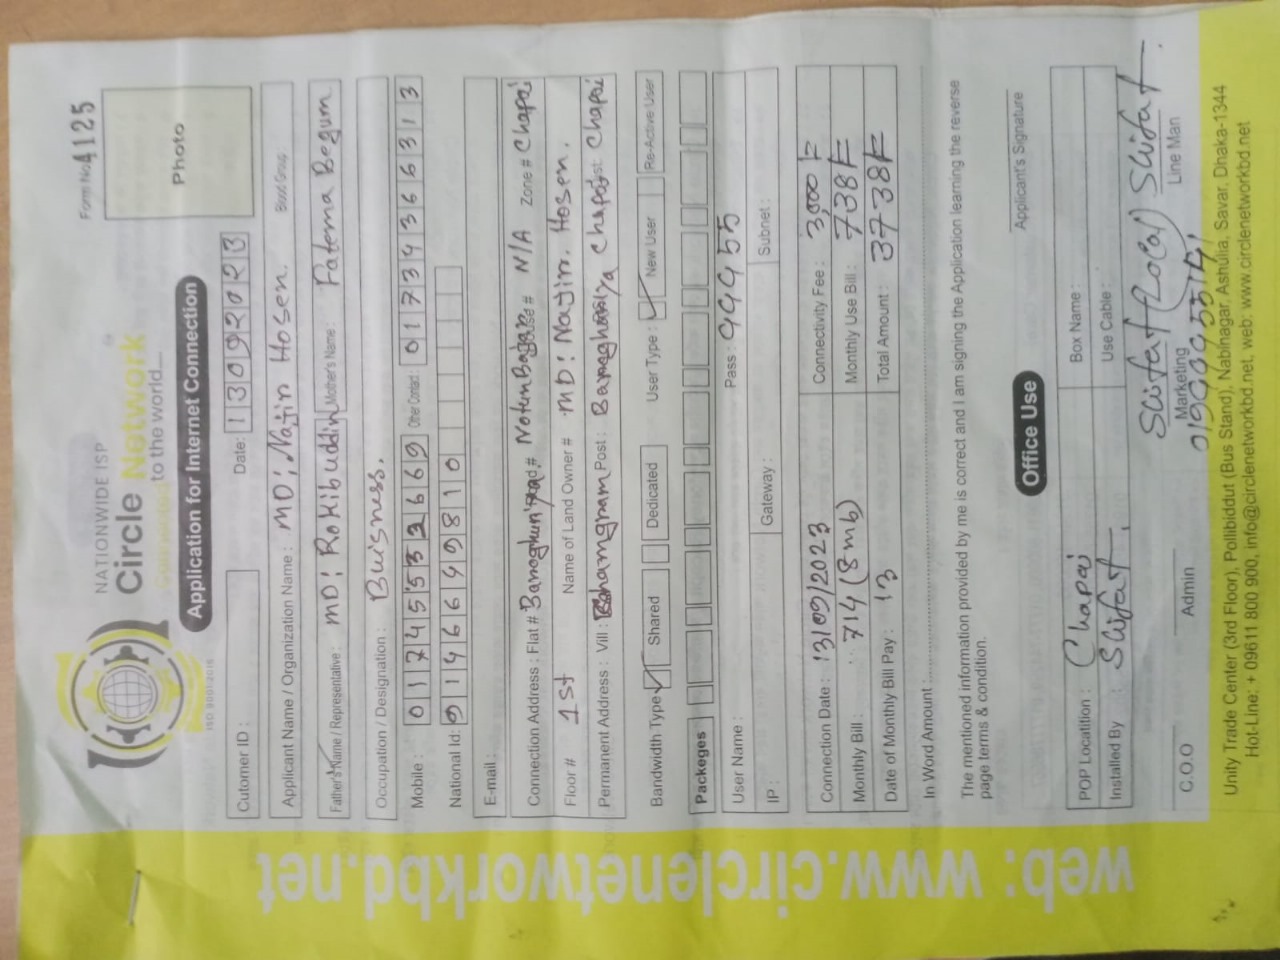 NATIONWIDE ISP
Circle Network
to the world...
ISO 9001:2015
Form No 4125
Photo
Application for Internet Connection
Cutomer ID :
Date: 13092023
Applicant Name / Organization Name : MD: Najin Hosen. Blood Group:
Father's Name / Representative : MD: Rokibuddin Mother's Name : Fatema Begum
Occupation / Designation : Buisness.
Mobile : 01745532669 Other Contact : 01734366313
National Id: 9146649810
E-mail :
Connection Address : Flat # Road# Notun Bazar House # N/A Zone # Chapai
Floor # 1st Name of Land Owner # MD: Najin. Hosen.
Permanent Address : Vill : Post : Dist: Chapai
Bandwidth Type Shared Dedicated User Type : New User Re-Active User
Packeges
User Name : Pass : 99955
IP : Gateway : Subnet :
Connection Date : 13/09/2023 Connectivity Fee : 3,000 F
Monthly Bill : 714 (8mb) Monthly Use Bill : 738 F
Date of Monthly Bill Pay : 13 Total Amount : 3738 F
In Word Amount :
The mentioned information provided by me is correct and I am signing the Application learning the reverse
page terms & condition.
Applicant's Signature
Office Use
POP Locatition : Chapai Box Name :
Installed By : Shifat. Use Cable :
Shifat (Local) Shifat.
C.O.O Admin Marketing Line Man
Unity Trade Center (3rd Floor), Pollibiddut (Bus Stand), Nabinagar, Ashulia, Savar, Dhaka-1344
Hot-Line: + 09611 800 900, info@circlenetworkbd.net, web: www.circlenetworkbd.net
web: www.circlenetworkbd.net